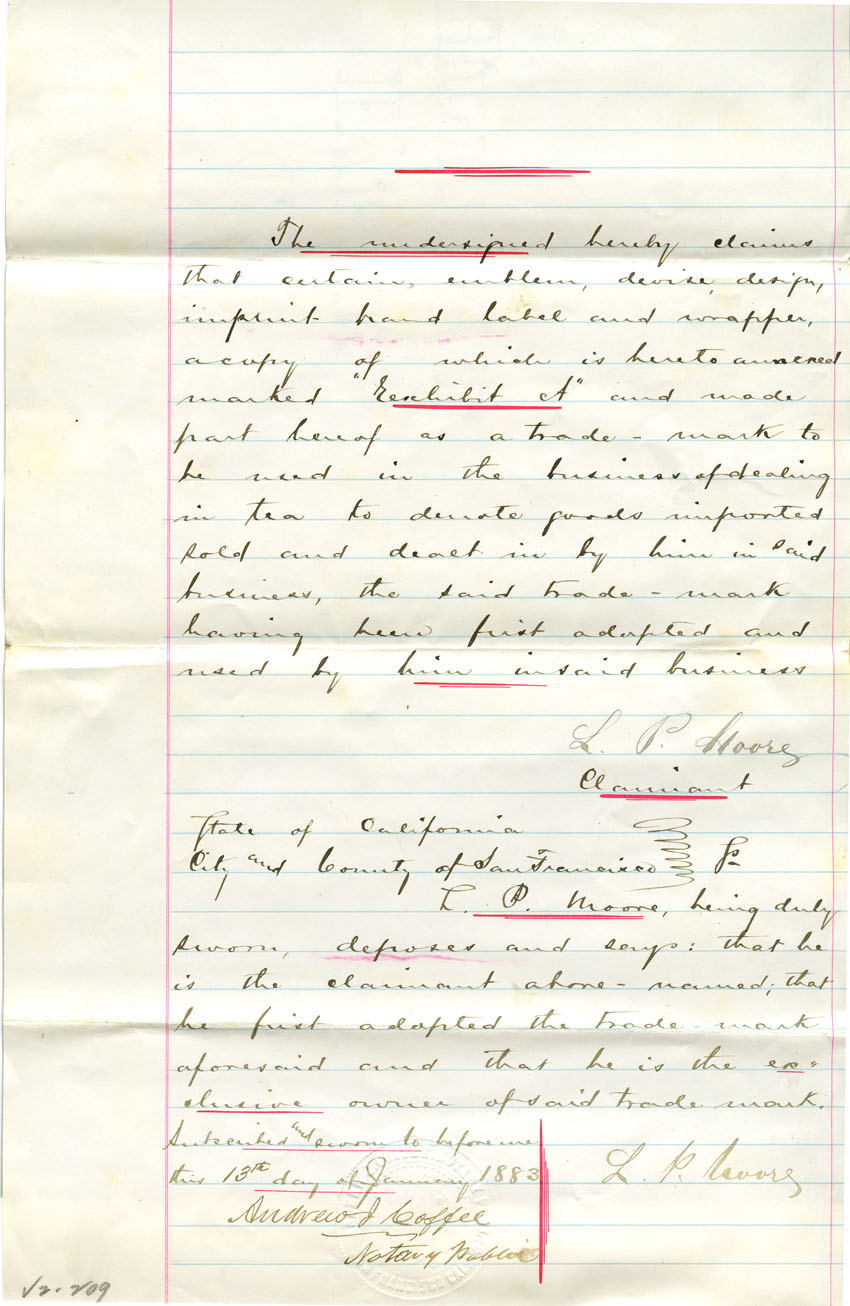 The undersigned hereby claims
that certain, emblem, devise, design,
imprint brand label and wrapper,
a copy of which is hereto annexed
marked "Exhibit A" and made
part hereof as a trade-mark to
be used in the business of dealing
in tea to denote goods imported
sold and dealt in by him in said
business, the said trade-mark
having been first adopted and
used by him in said business
L. P. Moore
Claimant
State of California
City and County of San Francisco } ss
L. P. Moore, being duly
sworn, deposes and says: that he
is the claimant above-named; that
he first adopted the trade-mark
aforesaid and that he is the ex-
clusive owner of said trade mark.
Subscribed and sworn to before me
this 13th day of January 1883
L. P. Moore
Andrew J Coffee
Notary Public
V2-209